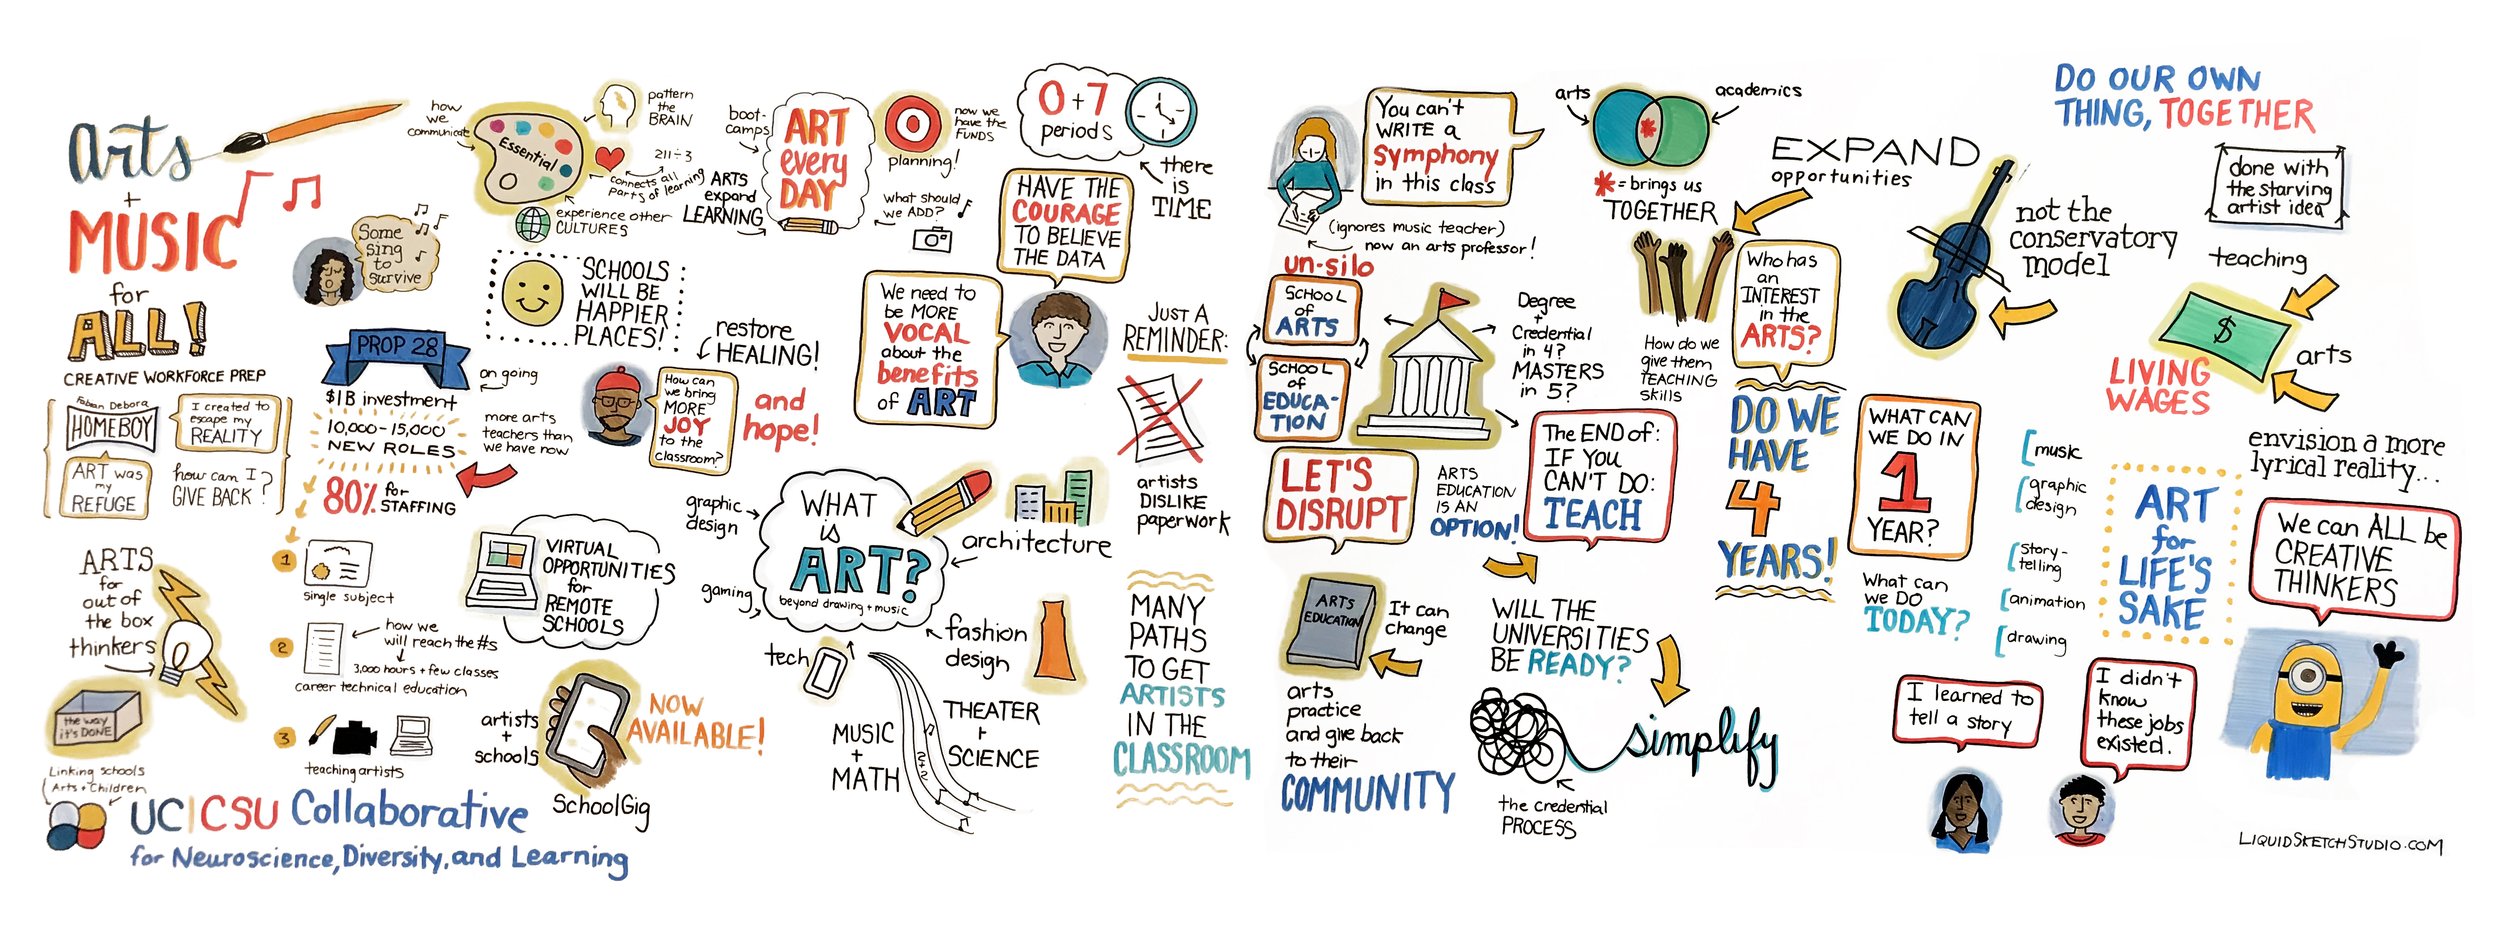 Arts
+
MUSIC
for
ALL!
CREATIVE WORKFORCE PREP
Fabian Debora
HOMEBOY
I created to
escape my
REALITY
ART was
my
REFUGE
how can I
GIVE BACK?
ARTS
for
out of
the box
thinkers
the way
it's DONE
Linking Schools
Arts + Children
UC|CSU Collaborative
for Neuroscience, Diversity, and Learning
how
we
communicate
Essential
pattern
the
BRAIN
211÷3
connects all
parts of learning
experience other
CULTURES
Some
sing
to
survive
SCHOOLS
WILL BE
HAPPIER
PLACES!
PROP 28
on going
$1B investment
10,000-15,000
NEW ROLES
more arts
teachers than
we have now
80% for
STAFFING
1
single subject
2
how we
will reach the #s
3,000 hours + few classes
career technical education
3
teaching artists
VIRTUAL
OPPORTUNITIES
for
REMOTE
SCHOOLS
artists
+
schools
NOW
AVAILABLE!
SchoolGig
boot-
camps
ARTS
expand
LEARNING
ART
every
DAY
now we
have the
FUNDS
planning!
what should
we ADD?
restore
HEALING!
How can
we bring
MORE
JOY
to the
classroom?
and
hope!
0+7
periods
there
is
TIME
HAVE THE
COURAGE
TO BELIEVE
THE DATA
We need to
be MORE
VOCAL
about the
benefits
of ART
JUST A
REMINDER:
artists
DISLIKE
paperwork
WHAT
is
ART?
beyond drawing + music
graphic
design
gaming
tech
architecture
fashion
design
MUSIC
+
MATH
THEATER
+
SCIENCE
MANY
PATHS
TO GET
ARTISTS
IN THE
CLASSROOM
You can't
WRITE a
symphony
in this class
(ignores music teacher)
now an arts professor!
un-silo
SCHOOL
of
ARTS
SCHOOL
of
EDUCA-
TION
Degree
+
Credential
in 4?
MASTERS
in 5?
LET'S
DISRUPT
ARTS
EDUCATION
IS AN
OPTION!
The END of:
IF YOU
CAN'T DO:
TEACH
ARTS
EDUCATION
It can
change
arts
practice
and give back
to their
COMMUNITY
WILL THE
UNIVERSITIES
BE READY?
simplify
the credential
PROCESS
arts
academics
* = brings us
TOGETHER
EXPAND
opportunities
How do we
give them
TEACHING
skills
Who has
an
INTEREST
in the
ARTS?
DO WE
HAVE
4
YEARS!
WHAT CAN
WE DO IN
1
YEAR?
What can
we DO
TODAY?
not the
conservatory
model
DO OUR OWN
THING, TOGETHER
done with
the starving
artist idea
teaching
$
arts
LIVING
WAGES
music
graphic
design
story-
telling
animation
drawing
ART
for
LIFE'S
SAKE
envision a more
lyrical reality...
We can ALL be
CREATIVE
THINKERS
I learned to
tell a story
I didn't
know
these jobs
existed.
LIQUIDSKETCHSTUDIO.COM